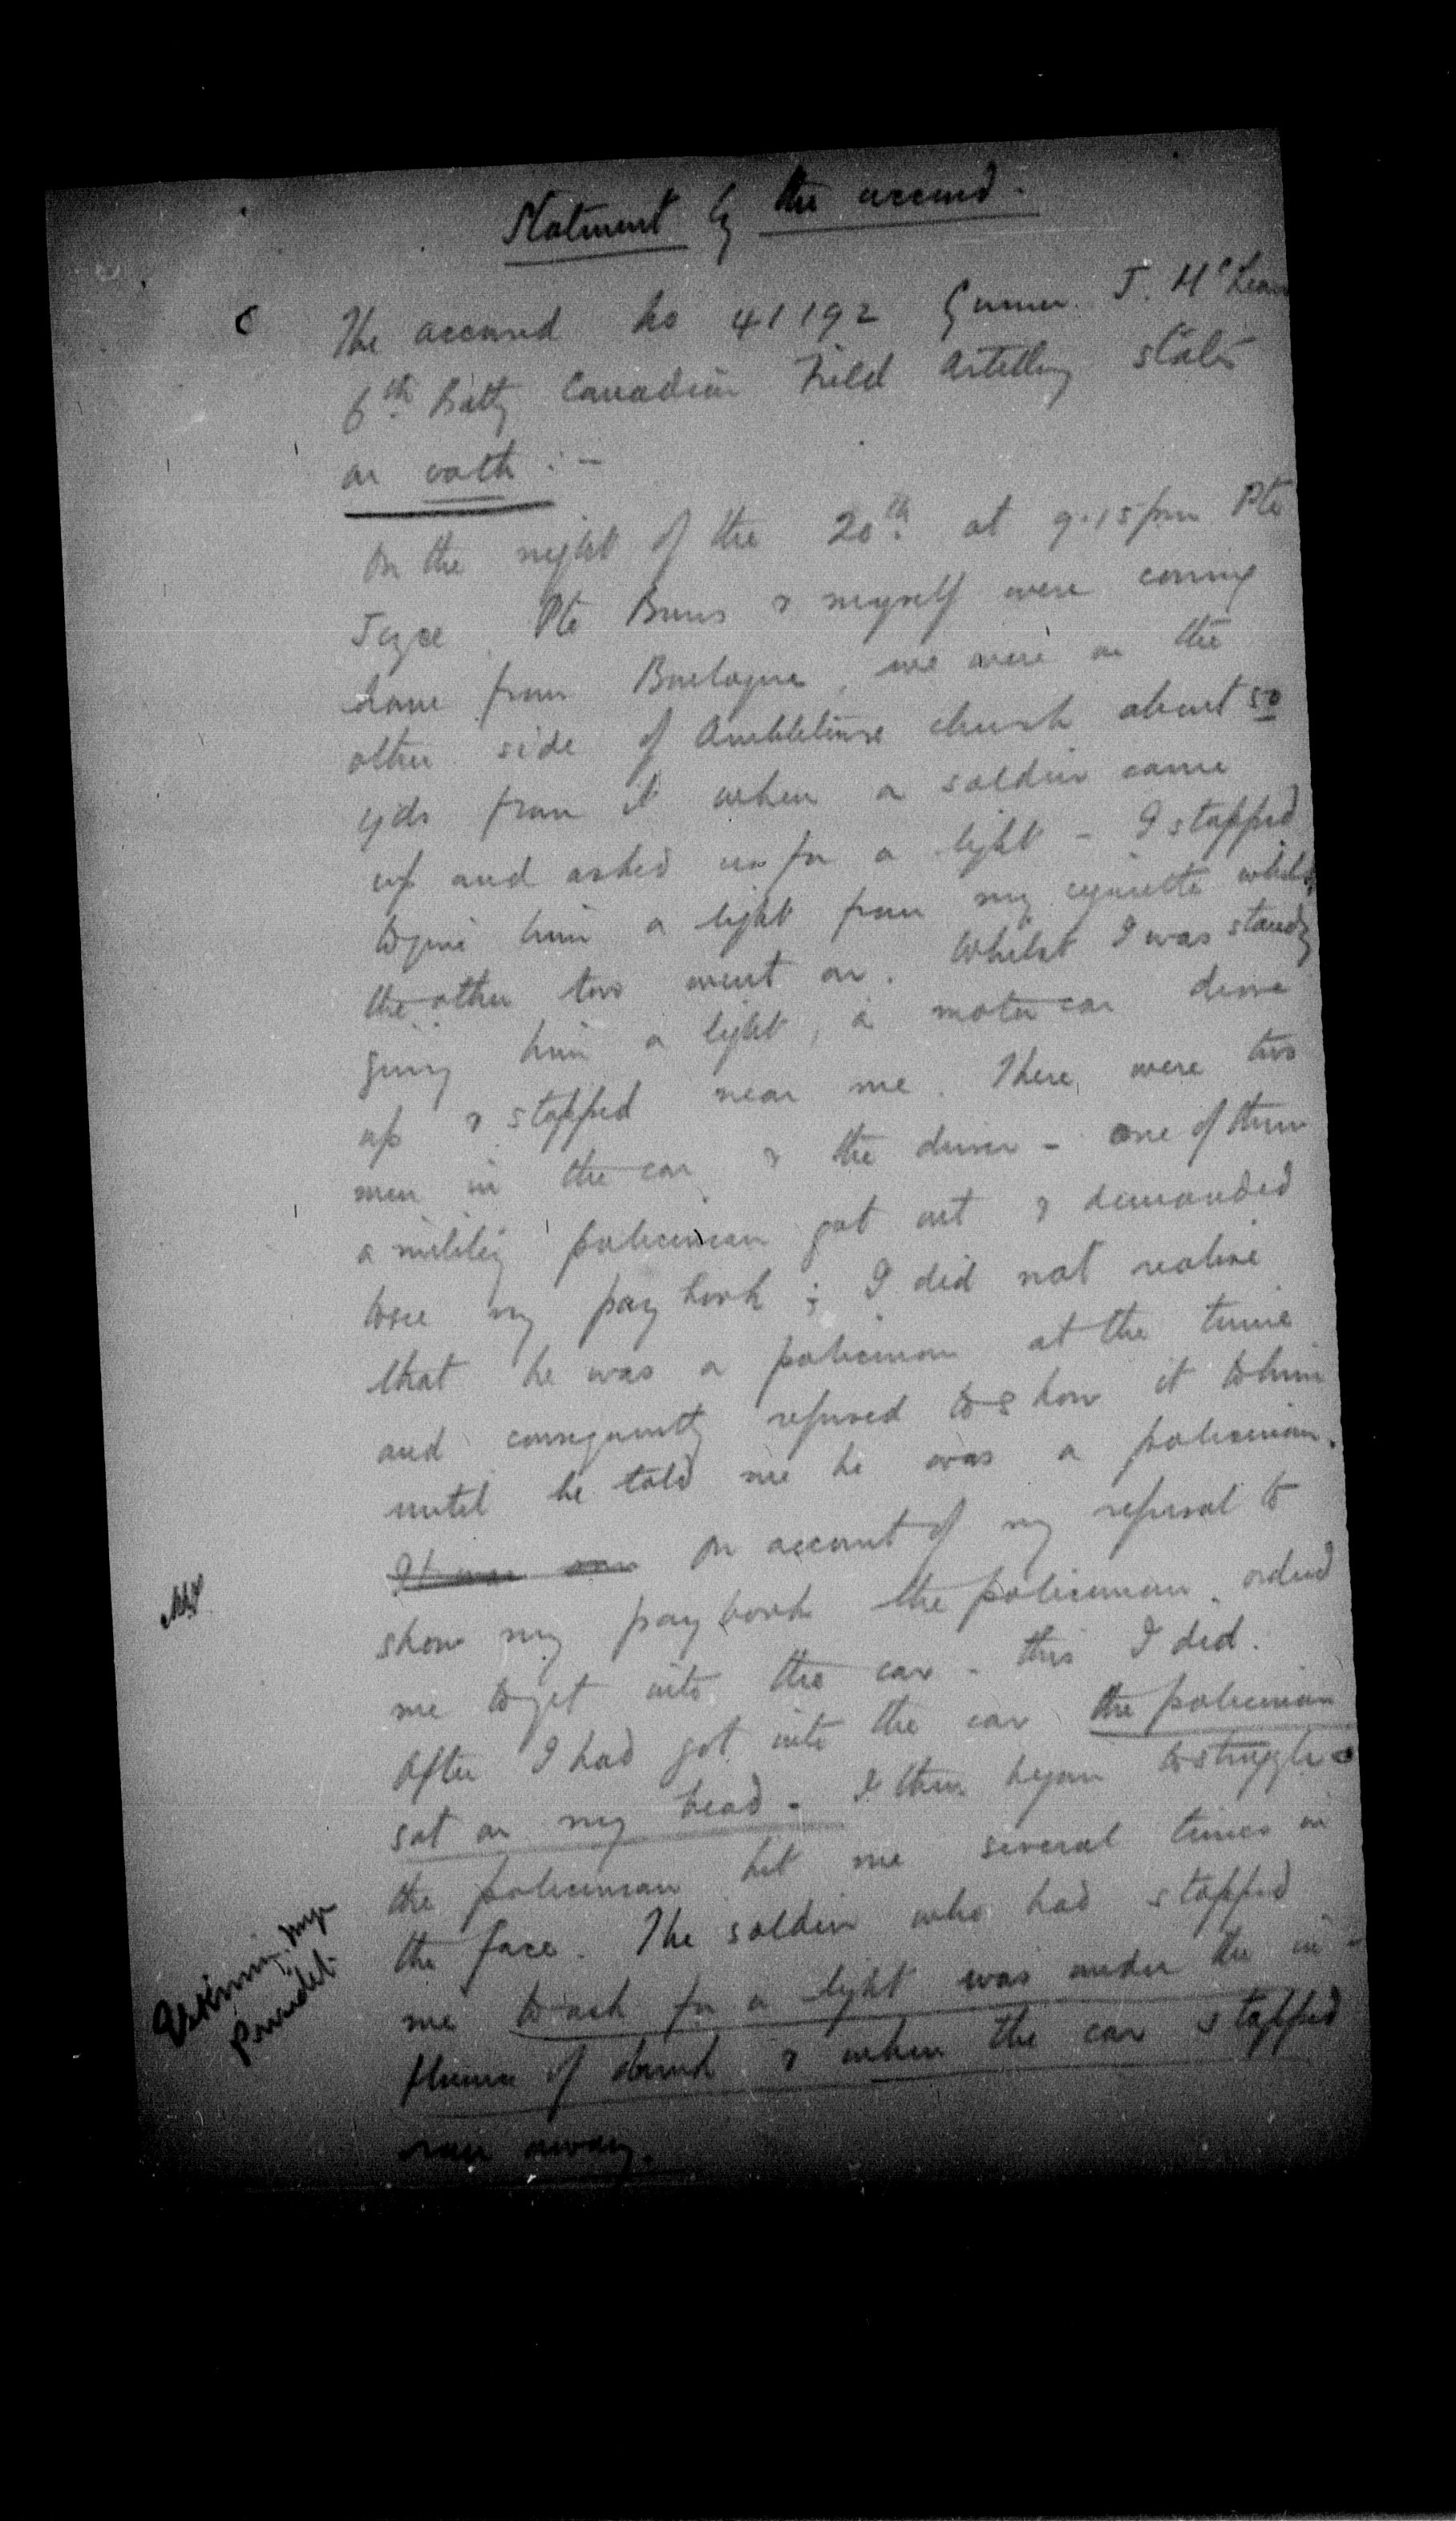 Statment by the accused.
C
The accused No 41192 Gunner J. McLean
6th Batty Canadian Field Artillery states
on oath :-
On the night of the 20th at 9.15 pm Pte
Joyce, Pte Burns & myself were coming
home from Boulogne, we were on the
other side of Ambleteuse church about 50
yds from it when a soldier came
up and asked us for a light - I stopped
to give him a light from my cigarette whilst
the other two went on. Whilst I was standg
giving him a light, a motor car drove
up & stopped near me. There were two
men in the car & the driver - one of them
a military policeman got out & demanded
to see my pay book ; I did not realise
that he was a policeman at the time
and consequently refused to show it to him
until he told me he was a policeman.
It was on account of my refusal to
show my pay book the policeman ordered
me to get into the car - this I did.
After I had got into the car the policeman
sat on my head - I then began to struggle &
the policeman hit me several times in
the face. The soldier who had stopped
me to ask for a light was under the in-
fluence of drink & when the car stopped
ran away.
President